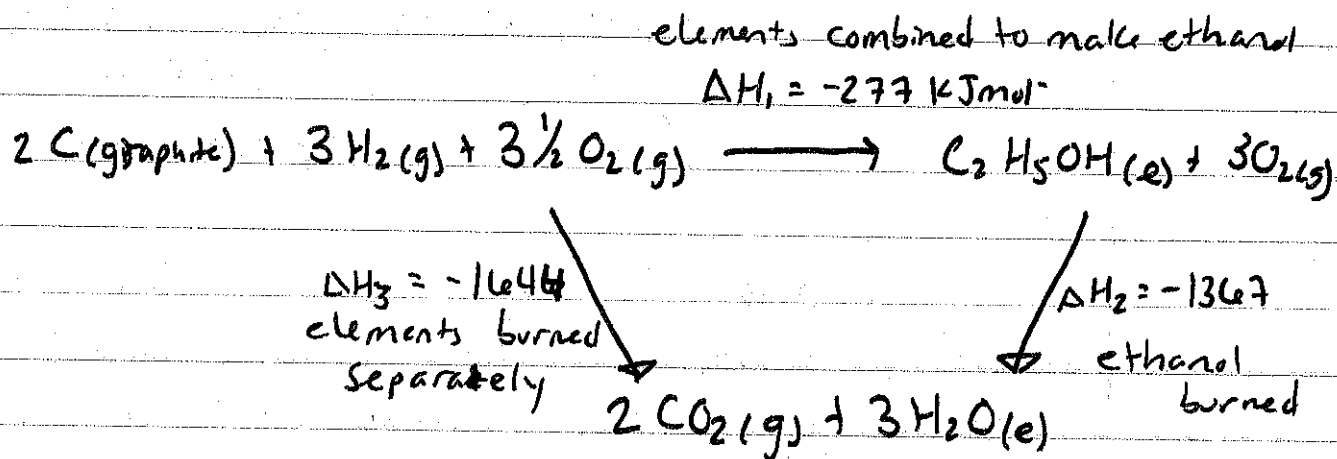 elements combined to make ethanol
ΔH₁ = -277 KJmol⁻
2 C(graphite) + 3 H₂(g) + 3 ½ O₂(g) → C₂H₅OH(l) + 3O₂(g)
ΔH₃ = -1644
elements burned
separately
ΔH₂ = -1367
ethanol
burned
2 CO₂(g) + 3 H₂O(l)